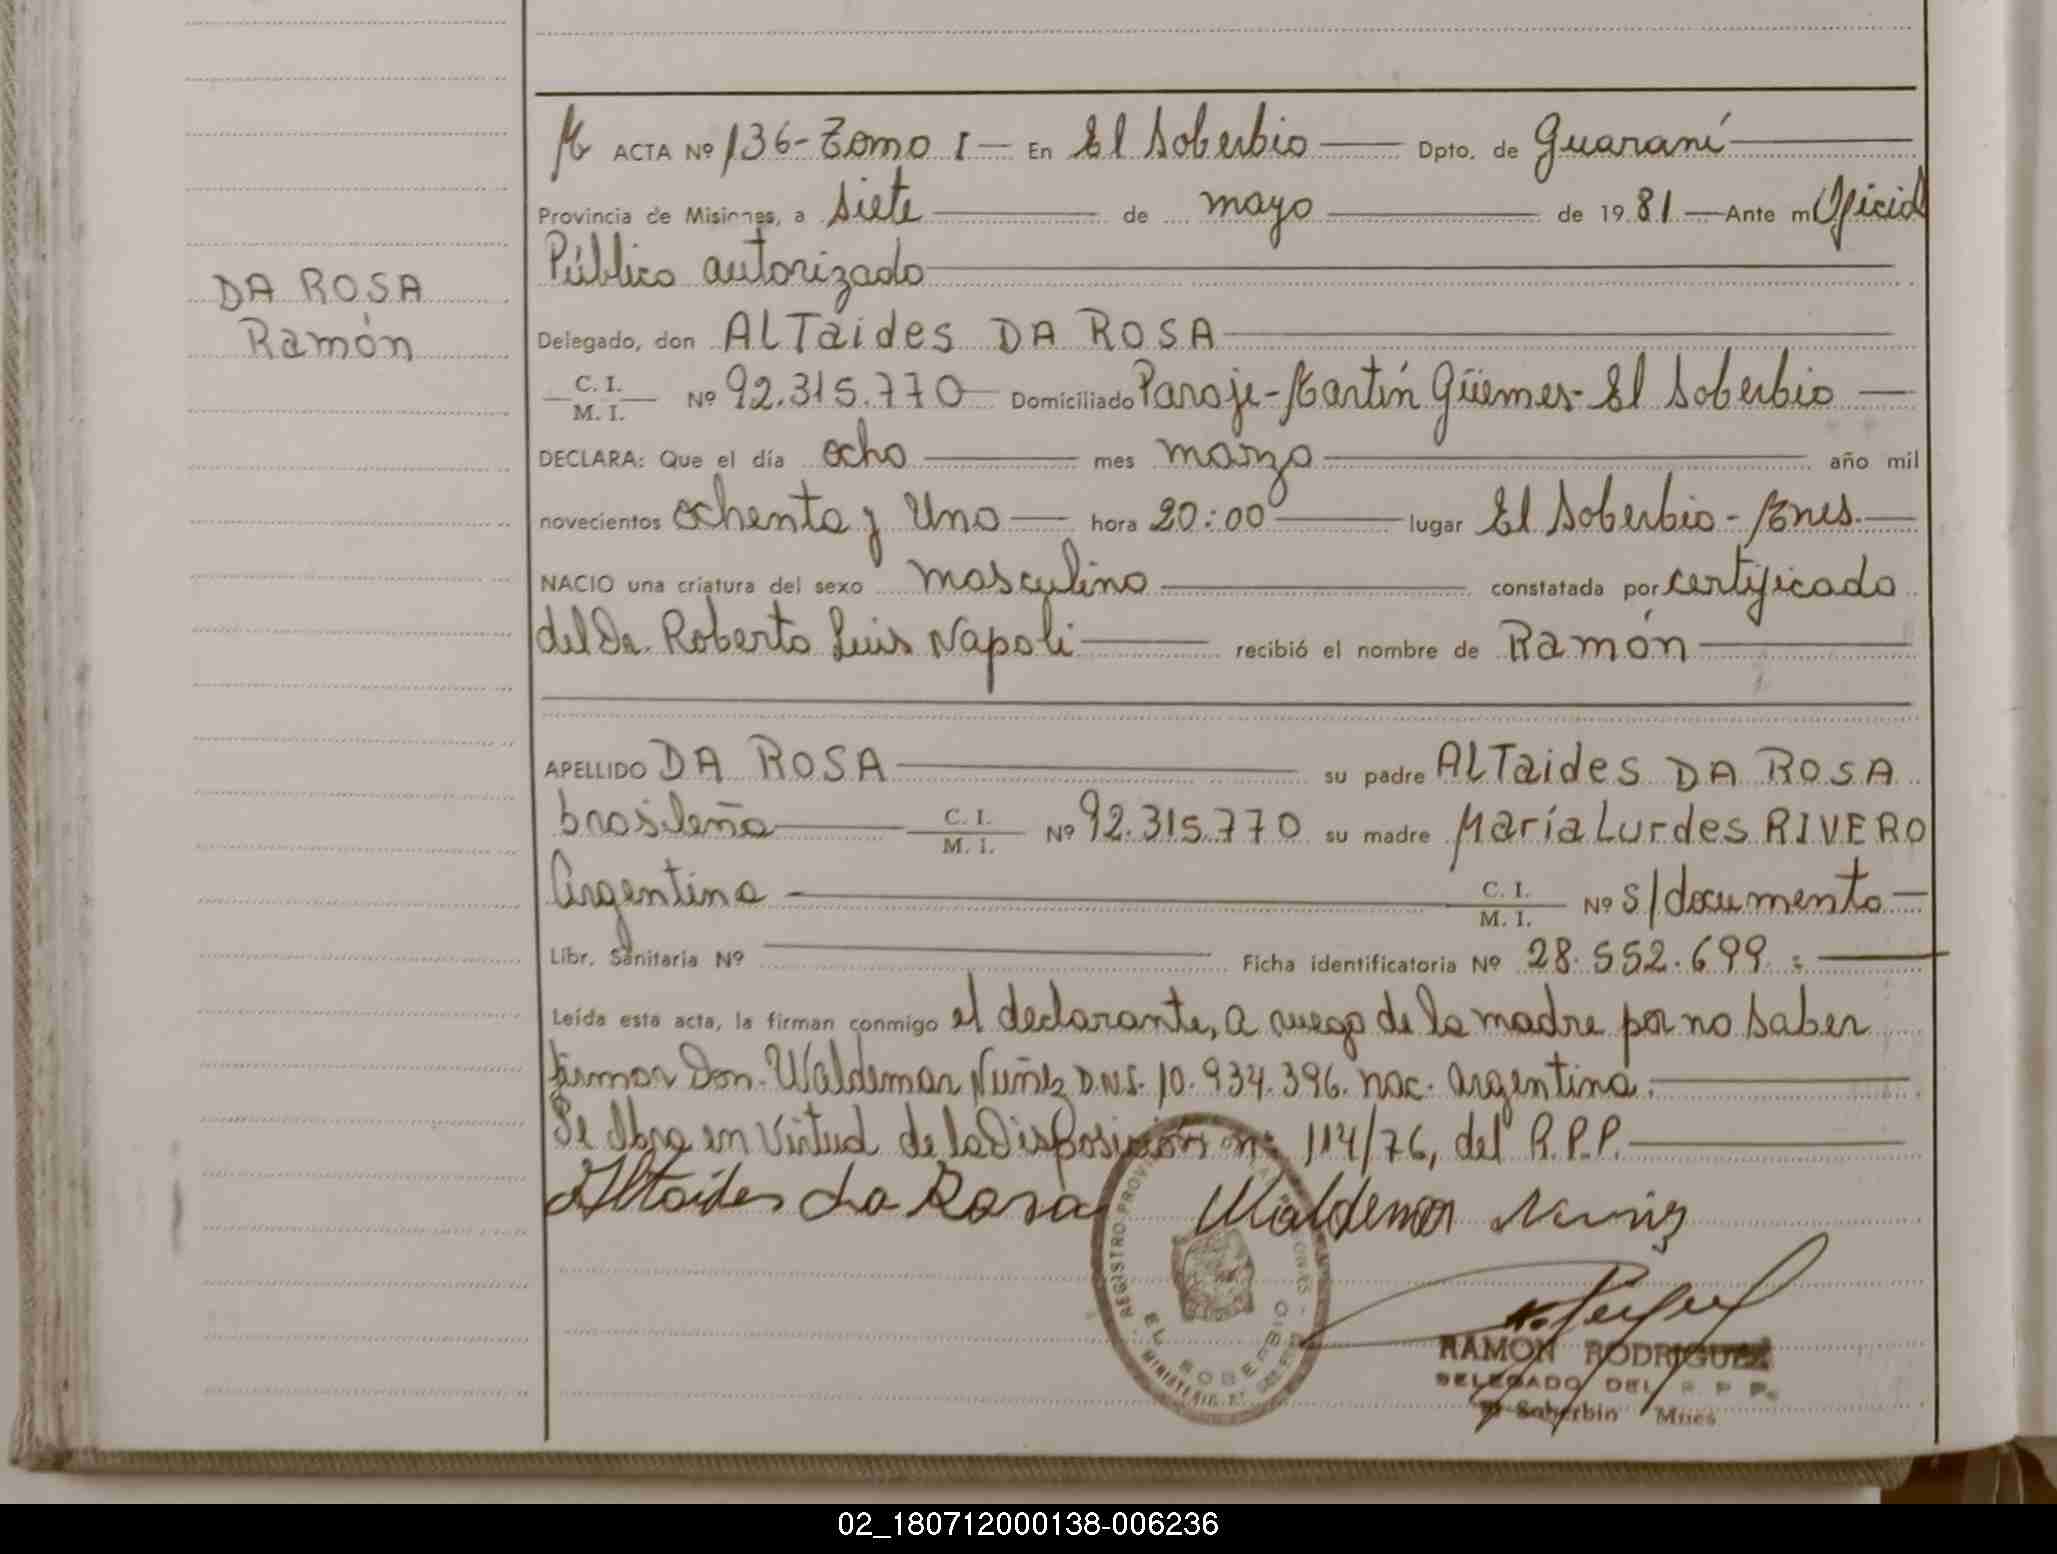 DA ROSA
Ramón
M ACTA Nº 136-Tomo I — En El Soberbio — Dpto. de Guaraní
Provincia de Misiones, a siete de mayo de 1981 — Ante mi Oficial
Público autorizado
Delegado, don ALTaides DA ROSA
C. I.
M. I. Nº 92.315.770 Domiciliado Paraje-Martín Güemes-El Soberbio —
DECLARA: Que el día ocho mes marzo año mil
novecientos ochenta y Uno — hora 20:00 lugar El Soberbio - Mnes.
NACIO una criatura del sexo masculino constatada por certificado
del Dr. Roberto Luis Napoli recibió el nombre de Ramón
APELLIDO DA ROSA su padre ALTaides DA ROSA
brasileña C. I. M. I. Nº 92.315.770 su madre María Lurdes RIVERO
Argentina C. I. M. I. Nº s/documento —
Libr. Sanitaria Nº Ficha identificatoria Nº 28.552.699.:
Leída esta acta, la firman conmigo el declarante, a ruego de la madre por no saber
firmar Don. Waldemar Nuñez D.N.I. 10.934.396. nac. argentina.
Se labra en virtud de la Disposición nº 114/76, del R.P.P.
Altaides da Rosa Waldemar Nuñez
REGISTRO PROVINCIAL PERSONAS - EL SOBERBIO - MINISTERIO DE GOBIERNO
RAMON RODRIGUEZ
DELEGADO DEL R P P.
El Soberbio Mnes
02_180712000138-006236